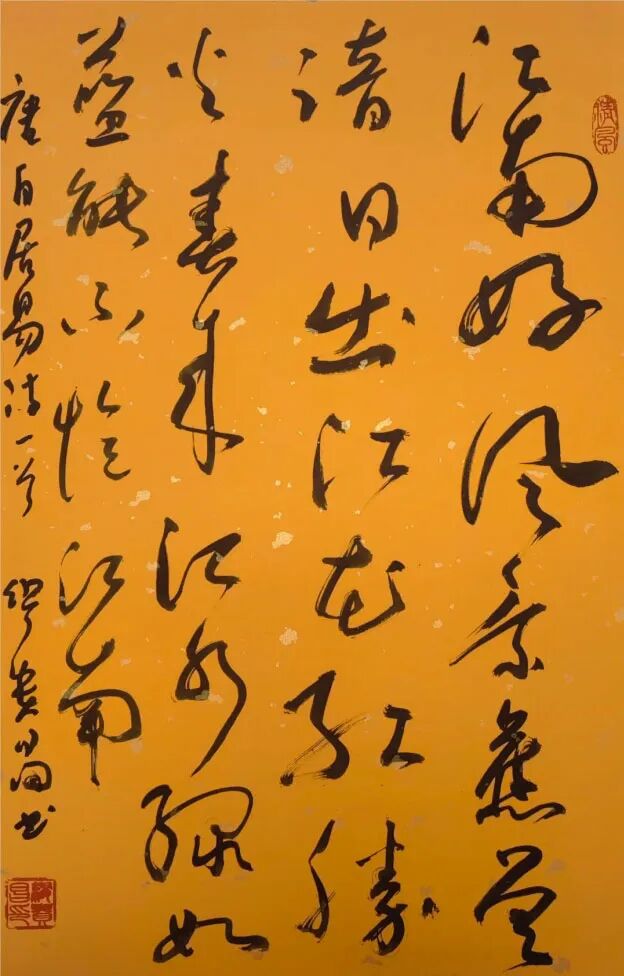 江南好风景舊曾
谙日出江花红勝
火春来江水绿如
蓝能不忆江南
唐白居易诗一首 书